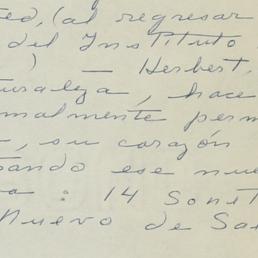 ted, (al regresar
del Instituto
) — Herbert,
turaleza, hace
malmente perm
, su corazón
ando ese nue
a : 14 Sonet
Nuevo de Sa